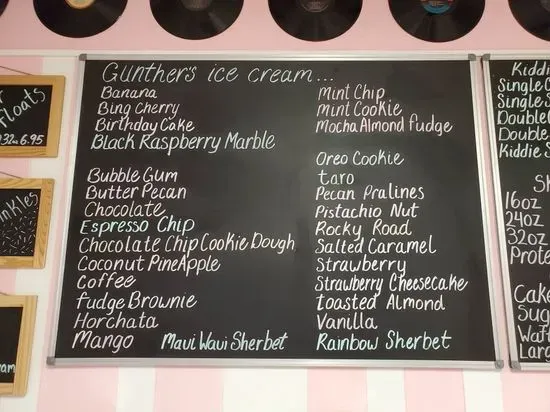 Gunther's ice cream...
Banana
Bing Cherry
Birthday Cake
Black Raspberry Marble
Bubble Gum
Butter Pecan
Chocolate
Espresso Chip
Chocolate Chip Cookie Dough
Coconut PineApple
Coffee
fudge Brownie
Horchata
Mango
Maui Waui Sherbet
Mint Chip
mint Cookie
Mocha Almond fudge
Oreo Cookie
taro
Pecan Pralines
Pistachio Nut
Rocky Road
Salted Caramel
Strawberry
Strawberry Cheesecake
toasted Almond
Vanilla
Rainbow Sherbet
floats
32oz 6.95
Kiddi
Single
Single S
Double
Double
Kiddie S
16oz
24oz
32oz
Prote
Cake
Suga
Waff
Larg